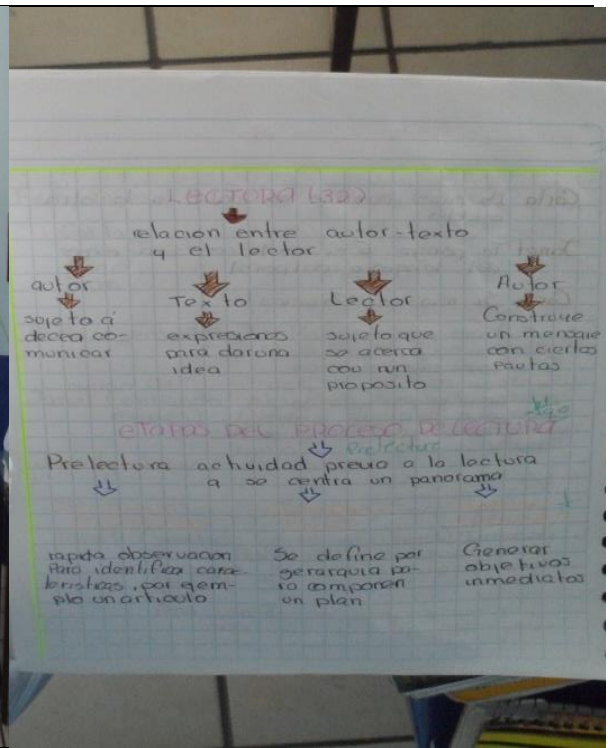 LECTURA (32)
relacion entre autor-texto
y el lector
autor
sujeto q
decea co-
municar
Texto
expresiones
para dar una
idea
Lector
sujeto que
se acerca
con un
proposito
Autor
Construye
un mensaje
con ciertas
pautas
ETAPAS DEL PROCESO DE LECTURA
Prelectura
Prelectura actividad previa a la lectura
a se centra un panorama
rapida observacion
para identificar cara
teristicas, por ejem-
plo un articulo
Se define por
gerarquia pa-
ra componen
un plan
Generar
objetivos
inmediatos